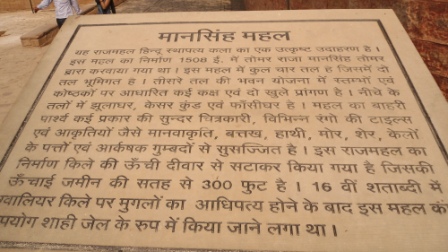 मानसिंह महल
यह राजमहल हिन्दू स्थापत्य कला का एक उत्कृष्ट उदाहरण है।
इस महल का निर्माण 1508 ई. में तोमर राजा मानसिंह तोमर
द्वारा करवाया गया था। इस महल में कुल चार तल है जिसमें दो
तल भूमिगत है। तीसरे तल की भवन योजना में स्तम्भों एवं
कोष्ठकों पर आधारित कई कक्ष एवं दो खुले प्रांगण है। नीचे के
तलों में झूलाघर, केसर कुंड एवं फाँसीघर है। महल का बाहरी
पार्श्व कई प्रकार की सुन्दर चित्रकारी, विभिन्न रंगों की टाइल्स
एवं आकृतियाँ जैसे मानवाकृति, बत्तख, हाथी, मोर, शेर, केलों
के पत्तों एवं आर्कषक गुम्बदों से सुसज्जित है। इस राजमहल का
निर्माण किले की ऊँची दीवार से सटाकर किया गया है जिसकी
ऊँचाई जमीन की सतह से 300 फुट है। 16 वीं शताब्दी में
ग्वालियर किले पर मुगलों का आधिपत्य होने के बाद इस महल का
उपयोग शाही जेल के रूप में किया जाने लगा था।